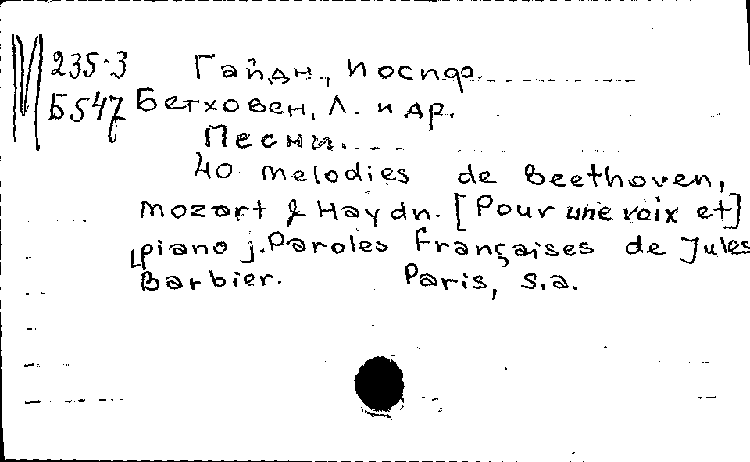 М 235.3 Гайдн, Иосиф
Б547 Бетховен, Л. и др.
Песни.
40 melodies de Beethoven,
Mozart & Haydn. [Pour une voix et]
[piano]. Paroles Françaises de Jules
Barbier. Paris, s.a.